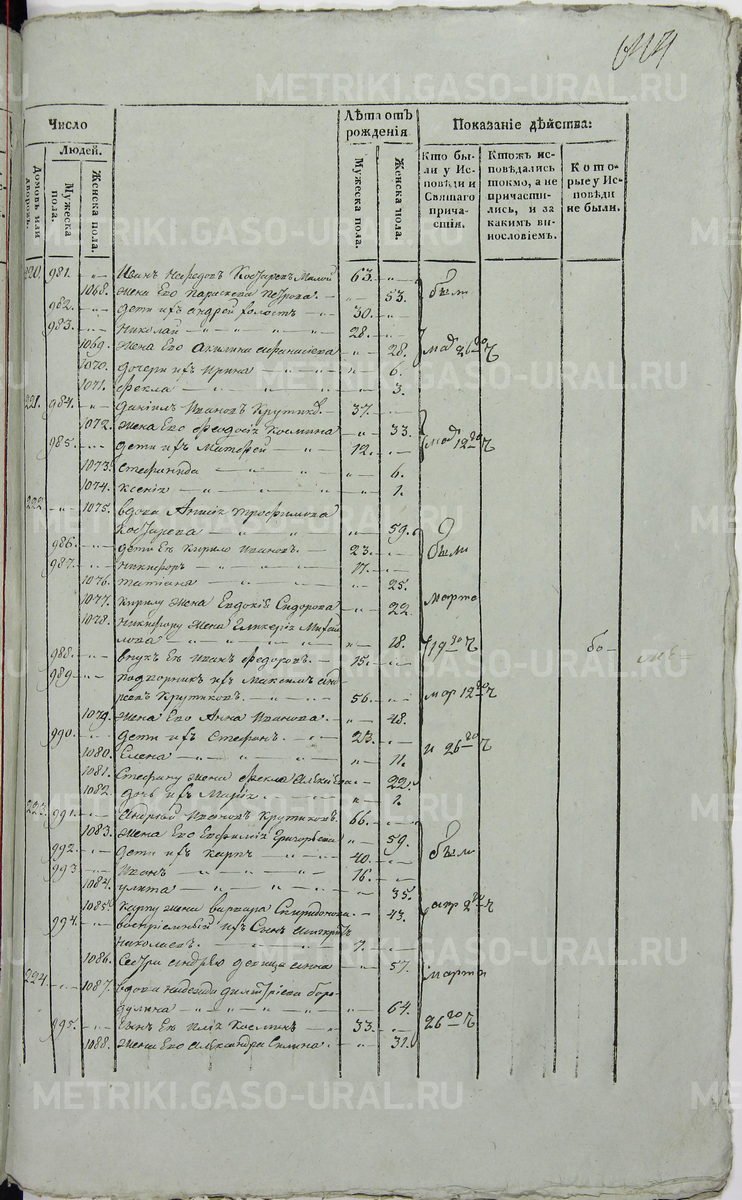 METRIKI.GASO-URAL.RU
Число
Людей.
Домовъ или дворовъ.
Мужеска пола.
Женска пола.
Лѣта отъ рожденія
Мужеска пола.
Женска пола.
Показаніе дѣйства:
Кто были у Исповѣди и Святаго причастія.
Ктожъ исповѣдались токмо, а не причастились, и за какимъ винословіемъ.
Которые у Исповѣди не были.
220. 981. Иванъ Косаревъ Малой 63.
1068. жена Его Параскева Петрова 53. были
982. дети ихъ Андрей холостъ 30.
983. Николай 28.
1069. жена Его Акилина 28. 26го ч
1070. дочери ихъ Ирина 6.
1071. Фекла 3.
221. 984. Данiилъ Ивановъ Крутик. 37.
1072. жена Его Феодосiя Космина 33.
985. дети ихъ 12. 12го ч
1073. Стефанида 6.
1074. Ксенiя 1.
222 1075. вдова Трофимова
Косарева 59.
986. дети Ея Кирило Ивановъ 23. были
987. Никифоръ 17.
1076. Татiана 25.
1077. Кирилу жена Евдокiя Сидорова 22. марта
1078. Никифору жена Гликерiя Михай
лова 18. 19го ч
988. внукъ Ея Иванъ Федоровъ 15.
989. подворникъ ихъ Максимъ Анд
реевъ Крутиковъ 56. мар 12го ч
1079. жена Его Анна Иванова 48.
990. дети ихъ Стефанъ 23. и 26го ч
1080. Елена 11.
1081. Стефану жена Фекла 22.
1082. дочь ихъ Марiя 1.
223. 991. Андрей Ивановъ Крутиковъ 66.
1083. жена Его Евфимiя Григорьева 59.
992. дети ихъ Карпъ 40. были
993 Иванъ 16.
1084. улита 35.
1085. Карпу жена варвара Спиридонова 43. апр 2го ч
994. воспрiемный ихъ Сынъ
Николаевъ 7.
1086. Сестра Андрею девица Анна 57. марта
224. 1087. вдова надежда димитрiева боро
дулина 64.
995. Сынъ Ея Илiя Косминъ 33. 26го ч
1088. жена Его Александра Силина 31.